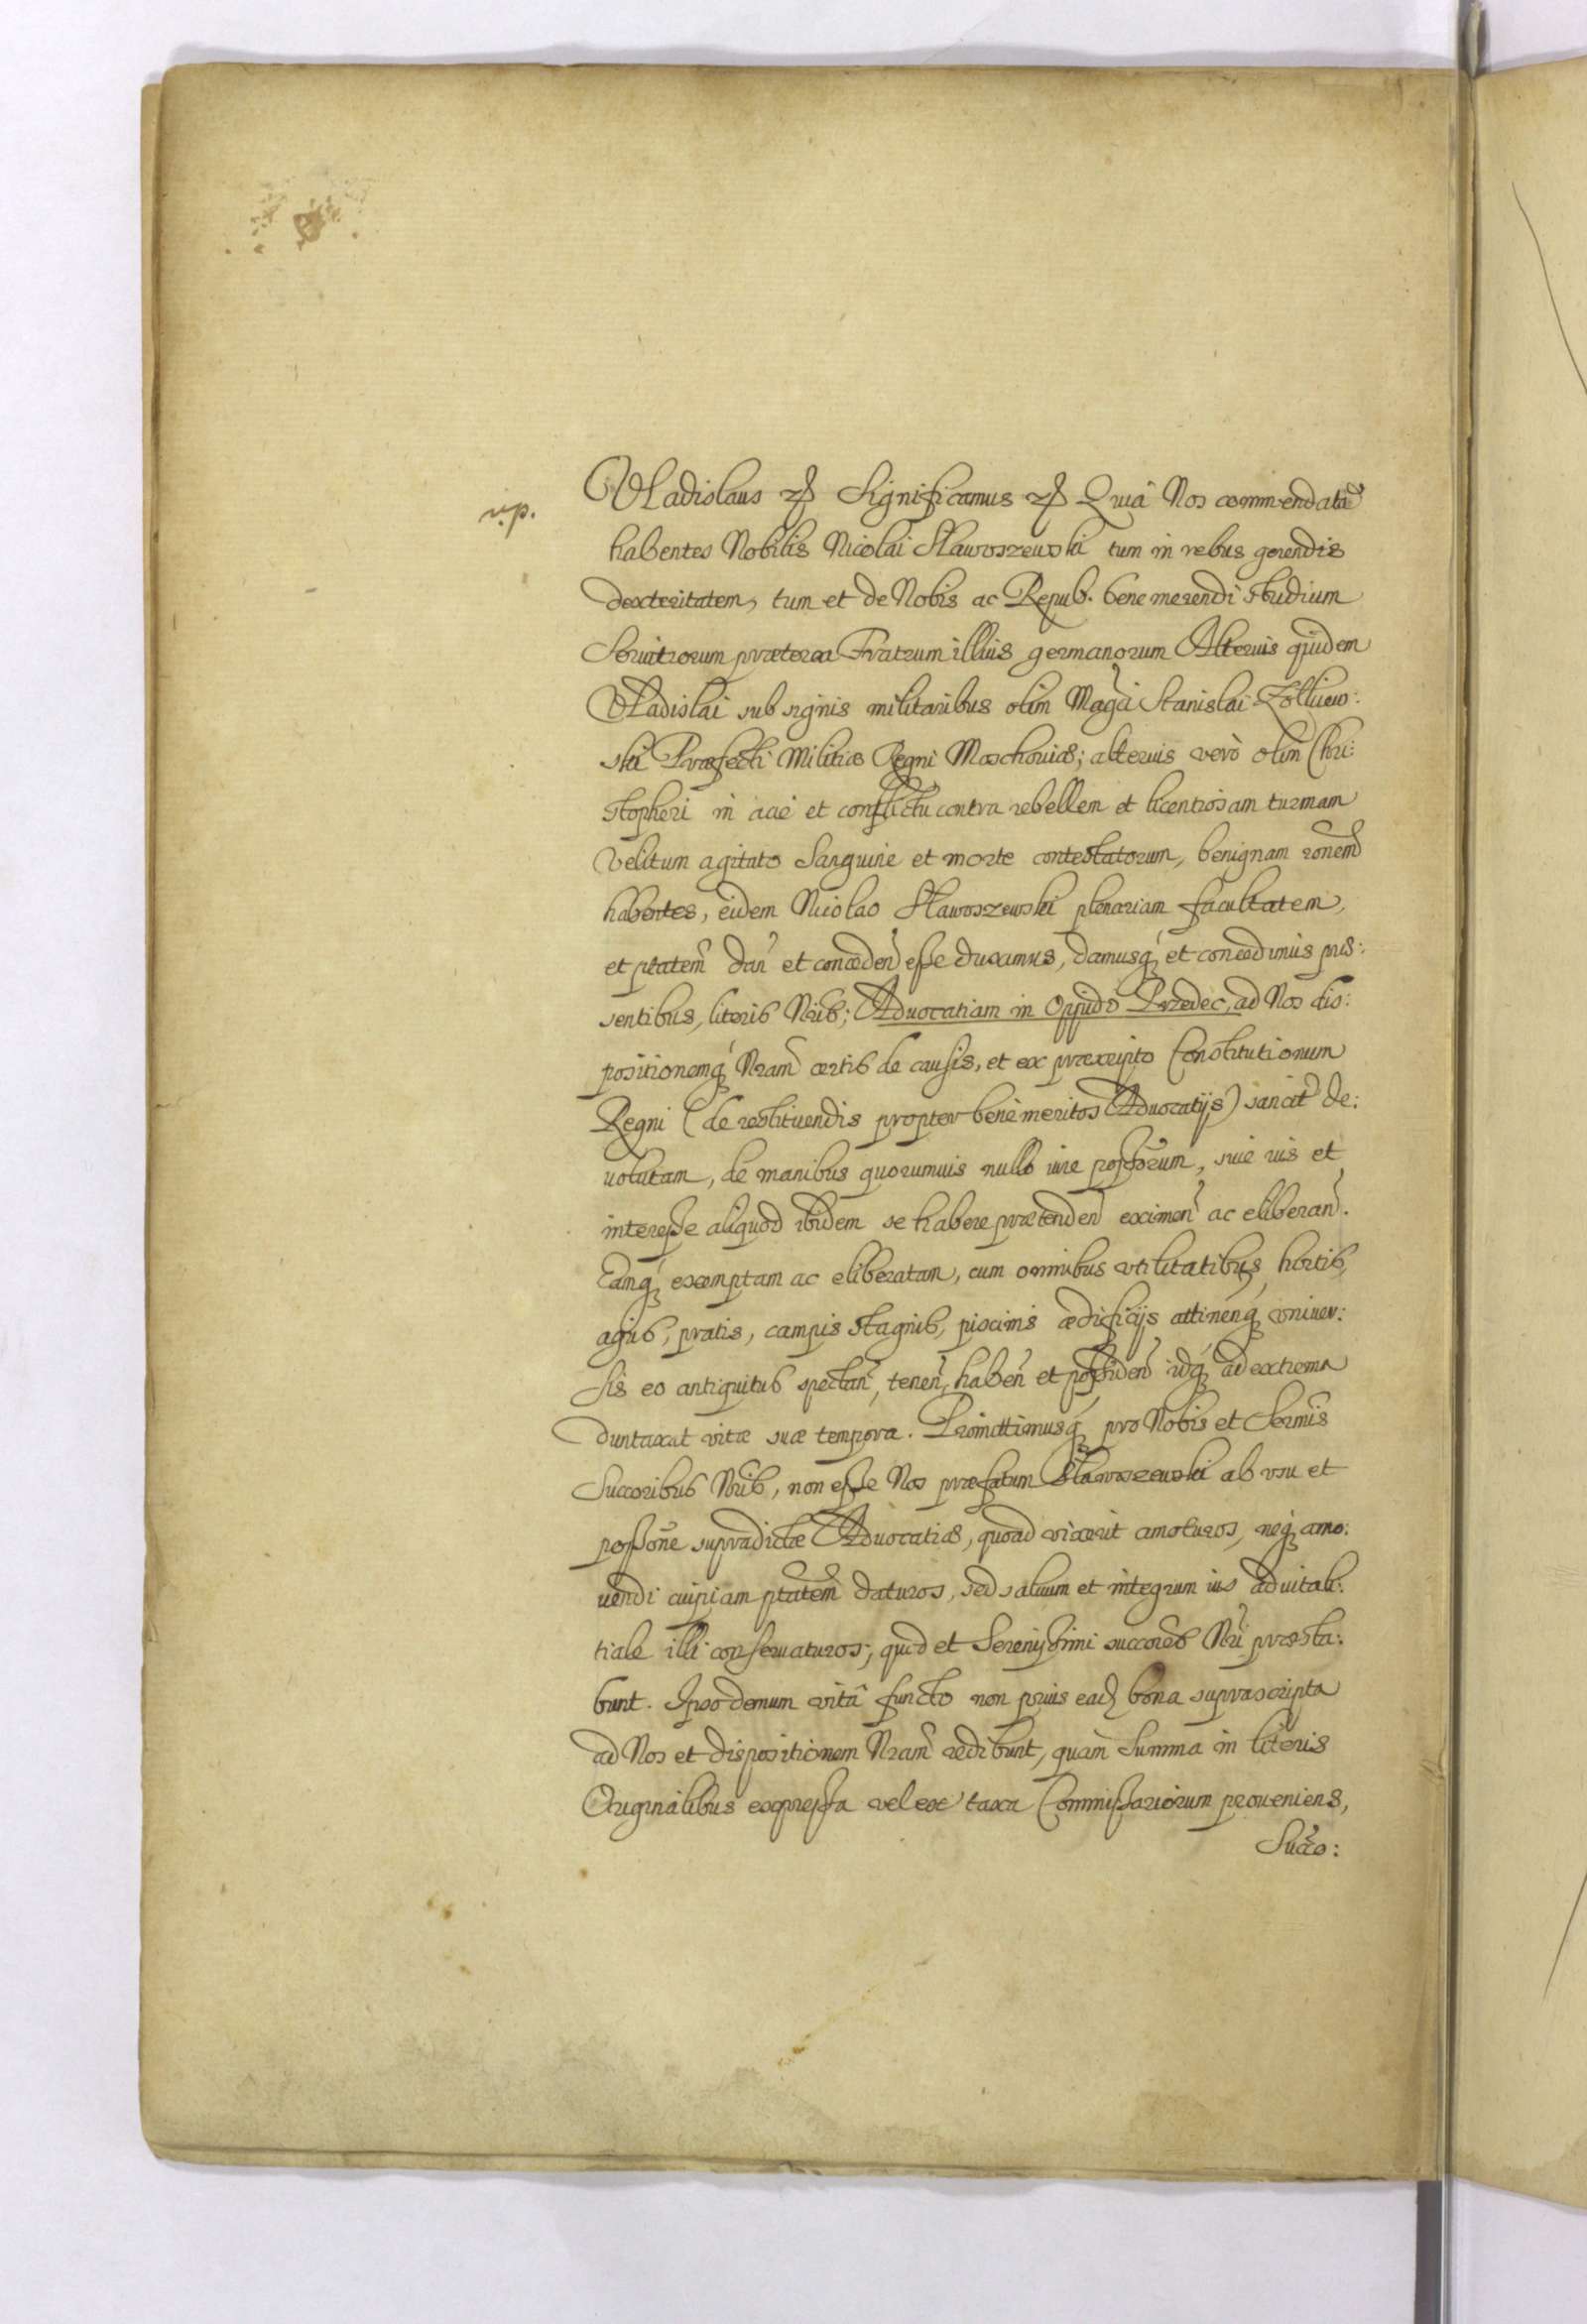 Vladislaus etc Significamus etc Quia Nos commendatã
r.p.
habentes Nobilis Nicolai Sławoszewski tum in rebus gerendis
dexteritatem, tum et de Nobis ac Repub. bene merendi studium
Seruitiorum præterea Fratrum illius germanorum Alterius quidem
Vladislai sub signis militaribus olim Magci Stanislai Zolkiew:
ski Præfecti Militiæ Regni Moschouiæ; alterius verò olim Chri:
stopheri in acie et conflictu contra rebellem et licentiosam turmam
Velitum agitato Sanguine et morte contestatorum, benignam ronem
habentes, eidem Nicolao Sławoszewski plenariam facultatem,
et ptatem dan et conceden esse duximus, damusq et concedimus præ:
sentibus, literis Nris; Aduocatiam in Oppido Przedec, ad Nos dis:
positionemq Nram certis de causis, et ex præscripto Constitutionum
Regni (de restituendis propter benè meritos Aduocatijs) sancit de:
uolutam, de manibus quorumuis nullo iure possorum, siue ius et
interesse aliquod ibidem se habere prætenden eximen ac eliberan.
Eamq exemptam ac eliberatam, cum omnibus vtilitatibus, hortis,
agris, pratis, campis stagnis, piscinis ædificijs attinenq vniuer:
sis eo antiquitus spectan, tenen, haben et possiden idq ad extrema
duntaxat vitæ suæ tempora. Promittimusq pro Nobis et Sermis
Succoribus Nris, non esse Nos præfatum Sławoszewski ab vsu et
possone supradictæ Aduocatiæ, quoad vixerit amoturos, neq amo:
uendi cuipiam ptatem daturos, sed saluum et integrum ius aduitali:
tiale illi conseruaturos; quod et Serenissimi succores Nri præsta:
bunt. Ipso demum vitâ functo non prius ead bona suprascripta
ad Nos et dispositionem Nram redibunt, quàm Summa in literis
Originalibus expressa vel ex taxa Commissariorum proueniens,
Succo: